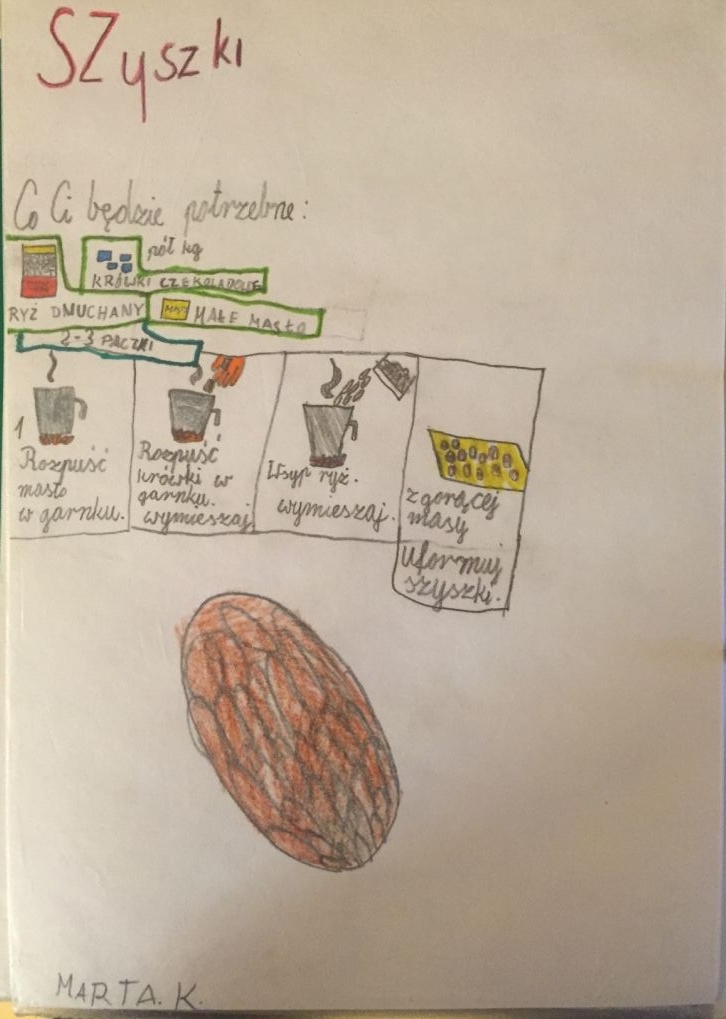 SZyszki
Co Ci będzie potrzebne:
pół kg
KRÓWKI CZEKOLADOWE
RYŻ DMUCHANY
MAŁE MASŁO
2-3 PACZKI
1
Rozpuść
masło
w garnku.
Rozpuść
krówki w
garnku.
wymieszaj
Wsyp ryż.
wymieszaj.
z gorącej
masy
uformuj
szyszki.
MARTA. K.